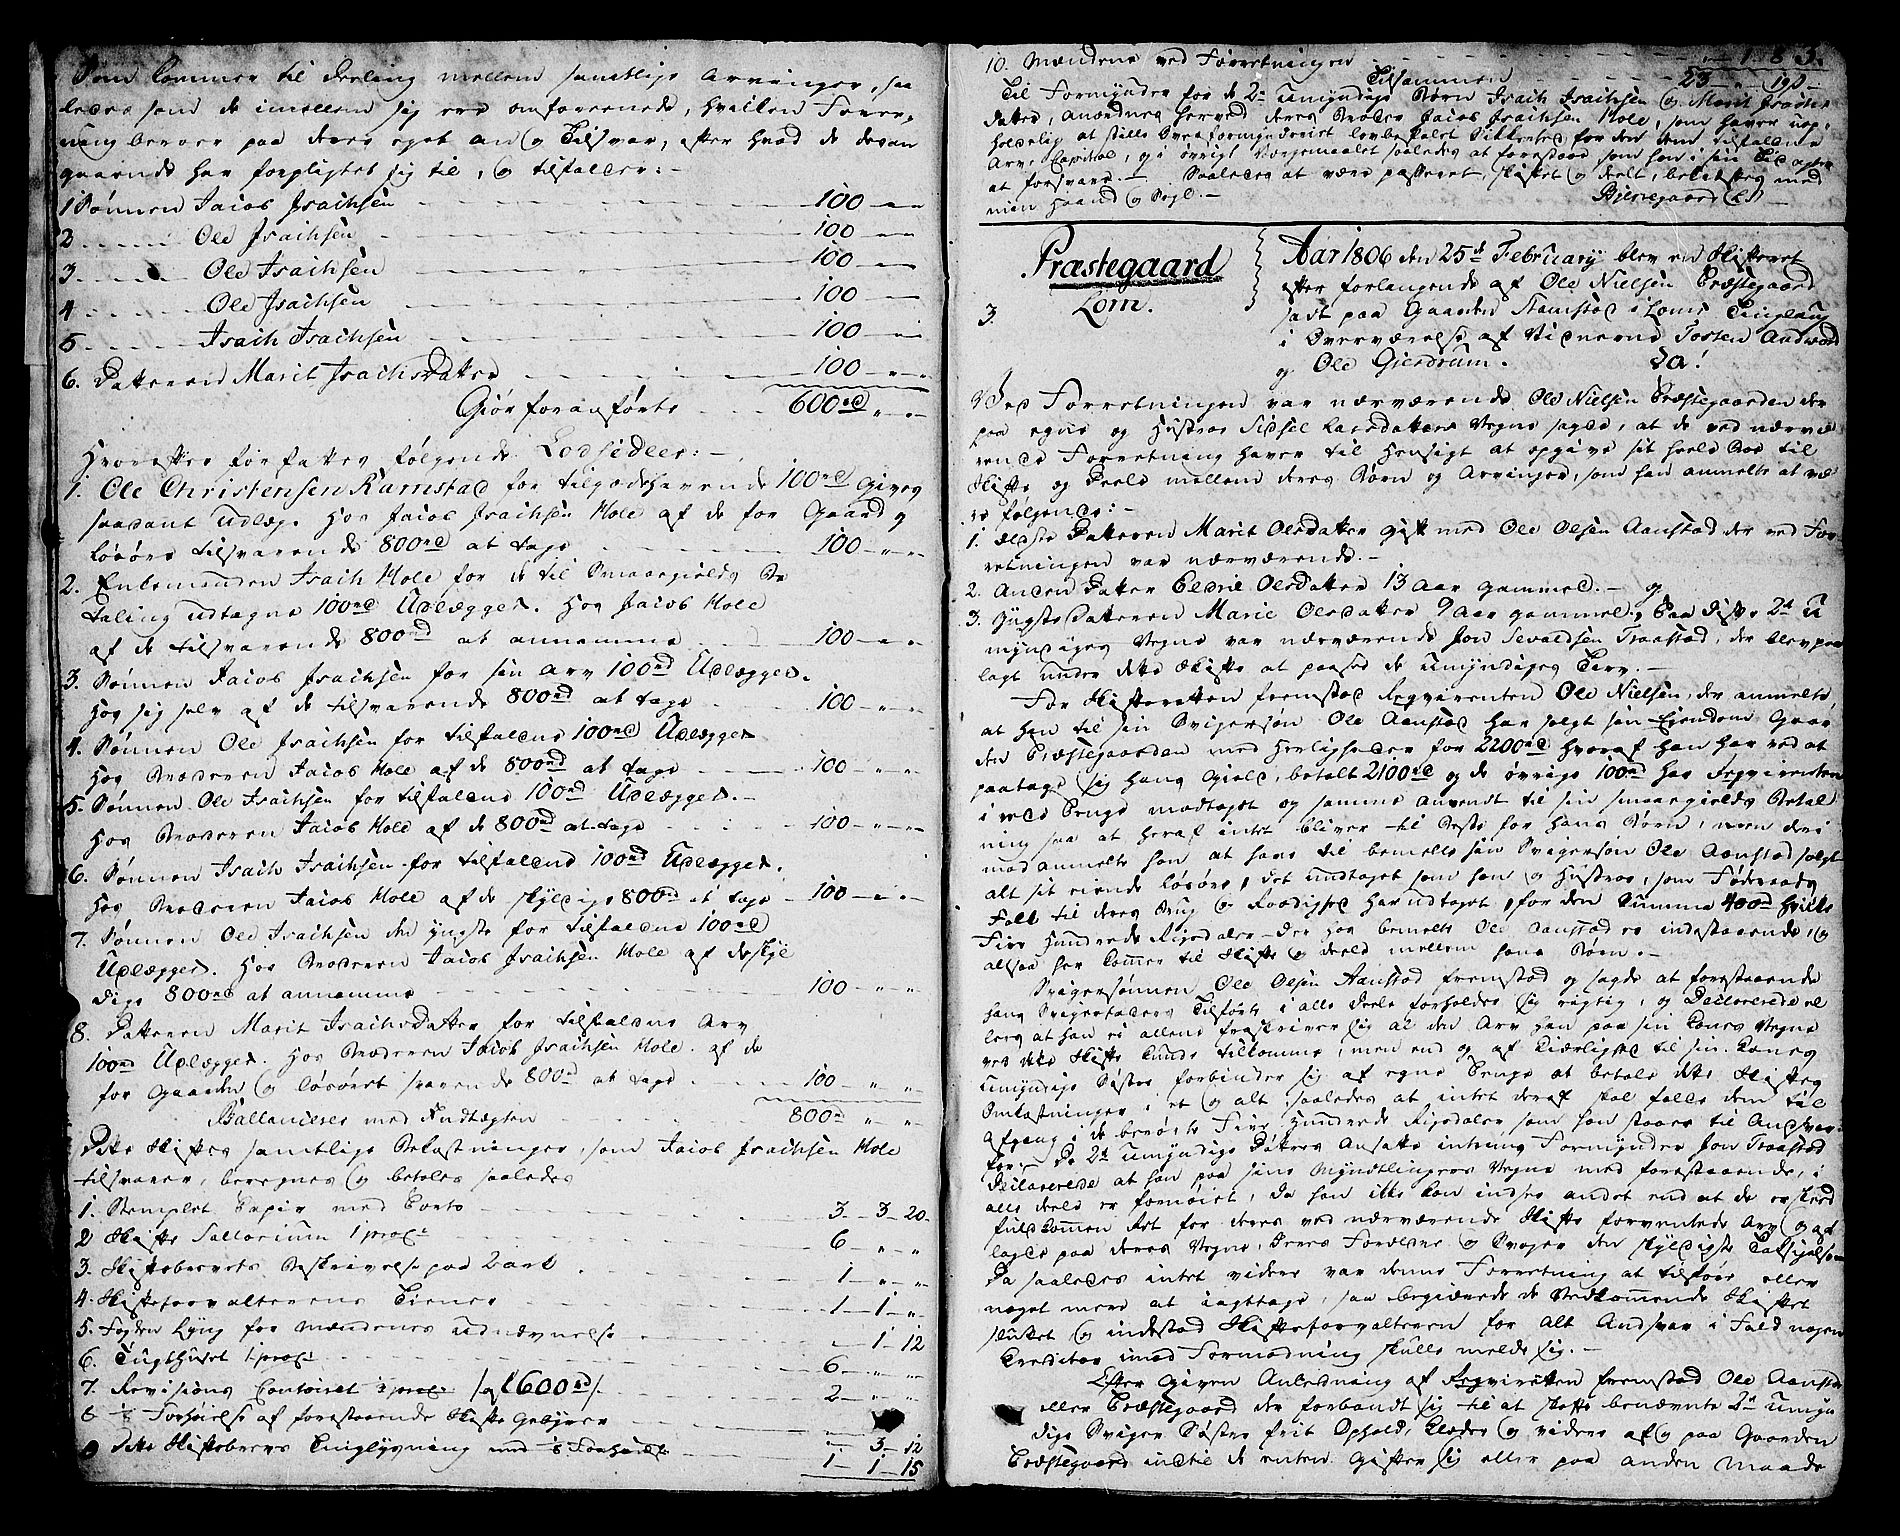 Som kommer til deeling mellem samtlige Arvinger, saa
ledes som de imellem sig ere omforeenede, hvilken Foree,
ning beroer paa deres eget An og Tilsvar, efter hvad de desan
gaaende har forpligtet sig til, og tilfalder:-
1 Sønnen Jacob Isachsen 100 — „ — „
2. Ole Isachsen 100 — „ — „
3 Ole Isachsen 100 — „ — „
4 Ole Isachsen 100 — „ — „
5 Isach Isachsen 100 — „ — „
6. Datteren Marit Isachsdatter 100 — „ — „
Giør foranførte 600rd „ — „
Hvorefter forfattes følgende Lodsedler:-
1. Ole Christensen Ramstad for tilgodehavende 100rd Gives
saadant Udlæg. Hos Jacob Isachsen Mole af de for Gaard og
Løsøre tilsvarende 800rd at tage 100 — „ — „
2. Enkemanden Isach Mole for de til Smaagields Be
taling udtagne 100rd Udlægges. Hos Jacob Mole
af de tilsvarende 800rd at annamme 100 — „ — „
3. Sønnen Jacob Isachsen for sin Arv 100rd Udlægges.
Hos sig selv af de tilsvarende 800rd at tage 100 — „ — „
4. Sønnen Ole Isachsen for tilfaldene 100rd Udlægges
Hos Broderen Jacob Mole af de 800rd at tage 100 — „ — „
5. Sønnen Ole Isachsen for tilfaldene 100rd Udlægges.-
Hos Broderen Jacob Mole af de 800rd at tage 100 — „ — „
6. Sønnen Isach Isachsen for tilfaldene 100rd Udlægges.
Hos Broderen Jacob Mole af de skyldige 800rd at tage 100 — „ — „
7. Sønnen Ole Isachsen den yngste for tilfaldene 100rd
Udlægges. Hos Broderen Jacob Isachsen Mole af de skyl
dige 800rd at annamme 100 „ „
8. Datteren Marit Isachsdatter for tilfaldene Arv
100rd Udlægges. Hos Broderen Jacob Isachsen Mole af de
for Gaarden og Løsøret svarende 800rd at tage 100 — „ „
Ballancerer med Indtægten 800rd „ „
Dette Skiftes samtlige Bekostninger, som Jacob Isachsen Mole
tilsvarer, beregnes og betales saaledes
1. Stemplet Papir med Porto 3 — 3 — 20
2 Skifte Sallarium 1 proC 6 — „ „
3. Skiftebrevets Beskrivelse paa 2 ark 1 — „ „
4. Skifteforvalterens Tiener 1 — 1 — „
5. Fogden Lyng for Mændenes Udnævnelse „ — 1 — 12
6. Tugthuset 1 proC 6 — „ „
7. Revisions Contoiret /af 600rd/ 2 — „ „
8 1/8 Forhøielse af forestaaende Skifte Gebyrer „ — 3 — 12
9 Dette Skiftebrevs Tinglysning med 1/8 Forhøielse 1 — 1 — 15
10. Mændene ved Forretningen 1 8 3.
Tilsammen 23 — „ — 19
Til Formynder for de 2de umyndige Børn Isach Isachsen og Marit Isachs
datter, anordnes herved deres Broder Jacob Isachsen Mole, som haver uop,
holdelig at stille Overformynderiet lovbefalet Sikkerhed for den dem tilfaldne
Arve Capital, og i øvrigt Værgemaalet saaledes at forestaae som han i sin Tid agter
at forsvare. — Saaledes at være passeret, skiftet og deelt, bekræftes med
min Haand og Segl.— Bjerregaard (LS)
Præstegaard
Lom.
3.
Aar 1806 den 25d February blev en Skifteret
efter forlangende af Ole Nielsen Præstegaard
sadt paa Gaarden i Loms Tinglaug
i Overværelse af Vidnerne Tosten Andvord
og Ole Gierdrum. Da!
Ved Forretningen var nærværende Ole Nielsen Præstegaarden der
paa egne og Hustroe Sidsel Larsdatters Vegne sagde, at de ved nærvæ
rende Forretning haver til Hensigt at opgive sit heele Boe til
Skifte og Deele mellem deres Børn og Arvinger, som han anmelte at væ
re følgende:-
1. Ældste Datteren Marit Olsdatter gift med Ole Olsen Aanstad der ved For
retningen var nærværende.-
2. Anden Datter Eldrie Olsdatter 13 Aar gammel.- og
3. Yngste Datteren Marie Olsdatter 9 Aar gammel. Paa disse 2de U
myndiges Vegne var nærværende Jon Sevaldsen Traastad, der blev paa
lagt under dette Skifte at paasee de Umyndiges Tarv.-
For Skifteretten fremstod Reqvirenten Ole Nielsen, der anmelte,
at han til sin Svigersøn Ole Aanstad har solgt sin Eiendom Gaar
den Præstegaarden med Herligheder for 2200rd hvoraf han har ved at
paatage sig hans Gield, betalt 2100rd og de øvrige 100rd har Reqvirenten
i reede Penge modtaget og samme anvendt til sin smaagields Betal
ning saa at heraf intet bliver til Beste for hans Børn, men deri
mod anmelte han at have til bemelte sin Svigersøn Ole Aanstad solgt
alt sit eiende Løsøre, det undtaget som han og Hustroe, som Føderaads
Folk til deres Brug og Raadighed har udtaget, for den Summa 400rd skriver
Fire Hundrede Rigsdaler — der hos bemelte Ole Aanstad er indestaaende, og
altsaa her kommer til Skifte og deele mellem hans Børn.-
Svigersønnen Ole Olsen Aanstad fremstod og sagde at forestaaende
hans Svigerfaders Tilførte i alle Deele forholder sig rigtig, og Declarerede el
lers at han ei allene fraskriver sig al den Arv han paa sin Kones Vegne
ved dette Skifte kunde tilkomme, men end og af Kierlighed til sin Kones
umyndige Søstre forbinder sig af egne Penge at betale dette Skiftes
Omkostninger i et og alt, saaledes at intet deraf skal falde dem til
afgang i de berørte Fire Hundrede Rigsdaler som han staaer til Ansvar
for. De 2de umyndige Døttres ansatte interims Formynder Jon Traastad
declarerede at han paa sine Myndtlingers Vegne med forestaaende, i
alle deele er fornøiet, da han ikke kan indsee andet end at de er skeed
fuldkommen Ret for deres ved nærværende Skifte forventede Arv og af
lagde paa deres Vegne, Deres Forældre og Svoger den skyldigste Taksigelse.
Da saaledes intet videre var denne Forretning at tilføre eller
noget mere at iagttage, saa begiærede de Vedkommende Skiftet
sluttet og indestod Skifteforvalteren for alt Andsvar i Fald nogen
Creditor imod Formodning skulle melde sig.-
Efter Given Anledning af Reqvirenten fremstod Ole Aanstad
eller Præstegaard der forbandt sig til at skaffe benævnte 2de umyn
dige Sviger Søstre frit Ophold, Klæder og videre af og paa Gaarden
Præstegaard indtil de enten Gifter sig eller paa anden Maade